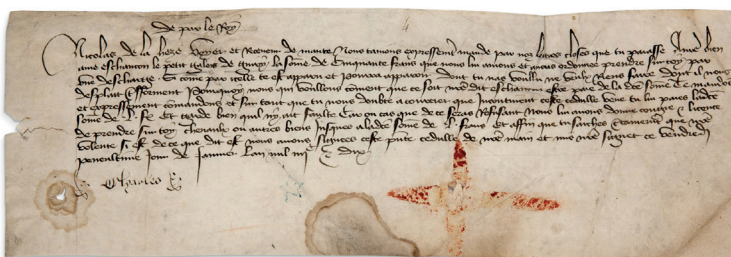 De par le Roy
Nicolas de la heze voyer et Receveur de mante Nous tavons expressemt mande par noz lectres closes que tu paiasse
ame eschancon le petit de la some de Cinquante frans que nous lui avions et avons ordonnee prendre sur toy par
une descharge Si come par icelle te est apparu et pourra apparoir dont tu nas voullu ne veulx riens faire dont il nous
desplait fforment Pourquoy nous qui voullons coment que ce soit nre dit eschancon estre paie de la dce some Te mandons
et expressement comandons et sur tout que tu nous doubte a courrecier que Incontinent ceste cedulle veue tu lui paies ladce
some de L fr Et garde bien quil ny ait faulte Car ou cas que de ce seras Reffusant Nous lui avons donne congie et licence
de prendre sur toy chevaulx ou autres biens Jusques a la dce some de L frans Et affin que tu saiches que nre
volente si est de ce que dit est nous avons signees ceste pnte cedulle de nre main et nre signet ce vendredi
penultime jour de Janvier Lan mil iiij &
Charles